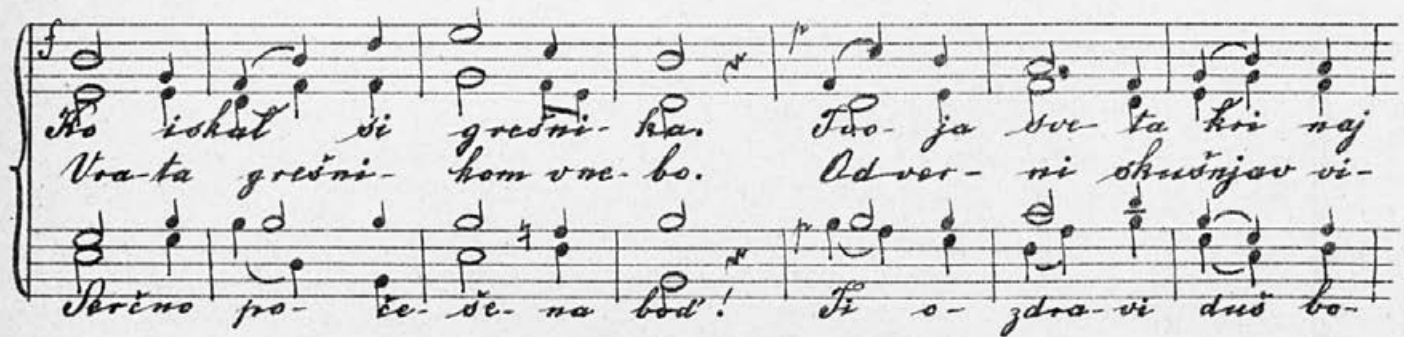 Ko iskal si grešni- ka. Tvo- ja sve- ta kri naj
Vra-ta grešni- kom v ne- bo. Od ver- ni skušnjav vi-
Serčno po- če- še- na bod'! Ti o- zdra- vi duš bo-